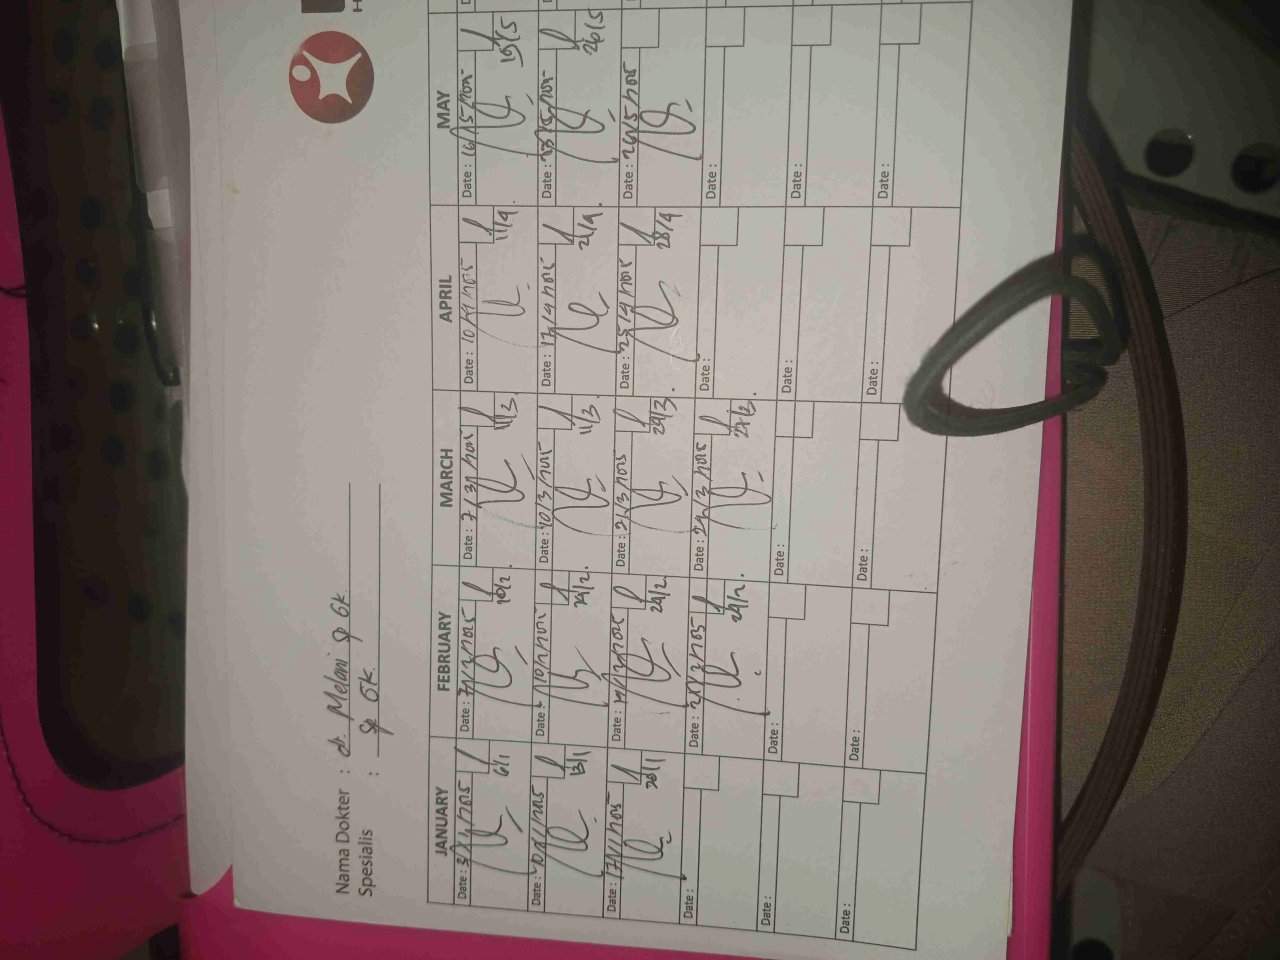 H
Nama Dokter : dr. Melani Sp GK
Spesialis : Sp GK
JANUARY FEBRUARY MARCH APRIL MAY
Date: 3/1/2025 Date: 7/2/2025 Date: 7/3/2025 Date: 10/4/2025 Date: 16/5/2025
6/1 10/2. 11/3. 11/4. 19/5
Date: 10/1/2025 Date: 10/2/2025 Date: 10/3/2025 Date: 17/4/2025 Date: 23/5/2025
13/1 24/2. 11/3. 21/4. 26/5
Date: 17/1/2025 Date: Date: 21/3/2025 Date: 25/4/2025 Date: 26/5/2025
20/1 24/2 24/3. 28/4
Date: Date: Date: 24/3/2025 Date: Date:
24/2. 27/3.
Date: Date: Date: Date: Date:
Date: Date: Date: Date: Date: